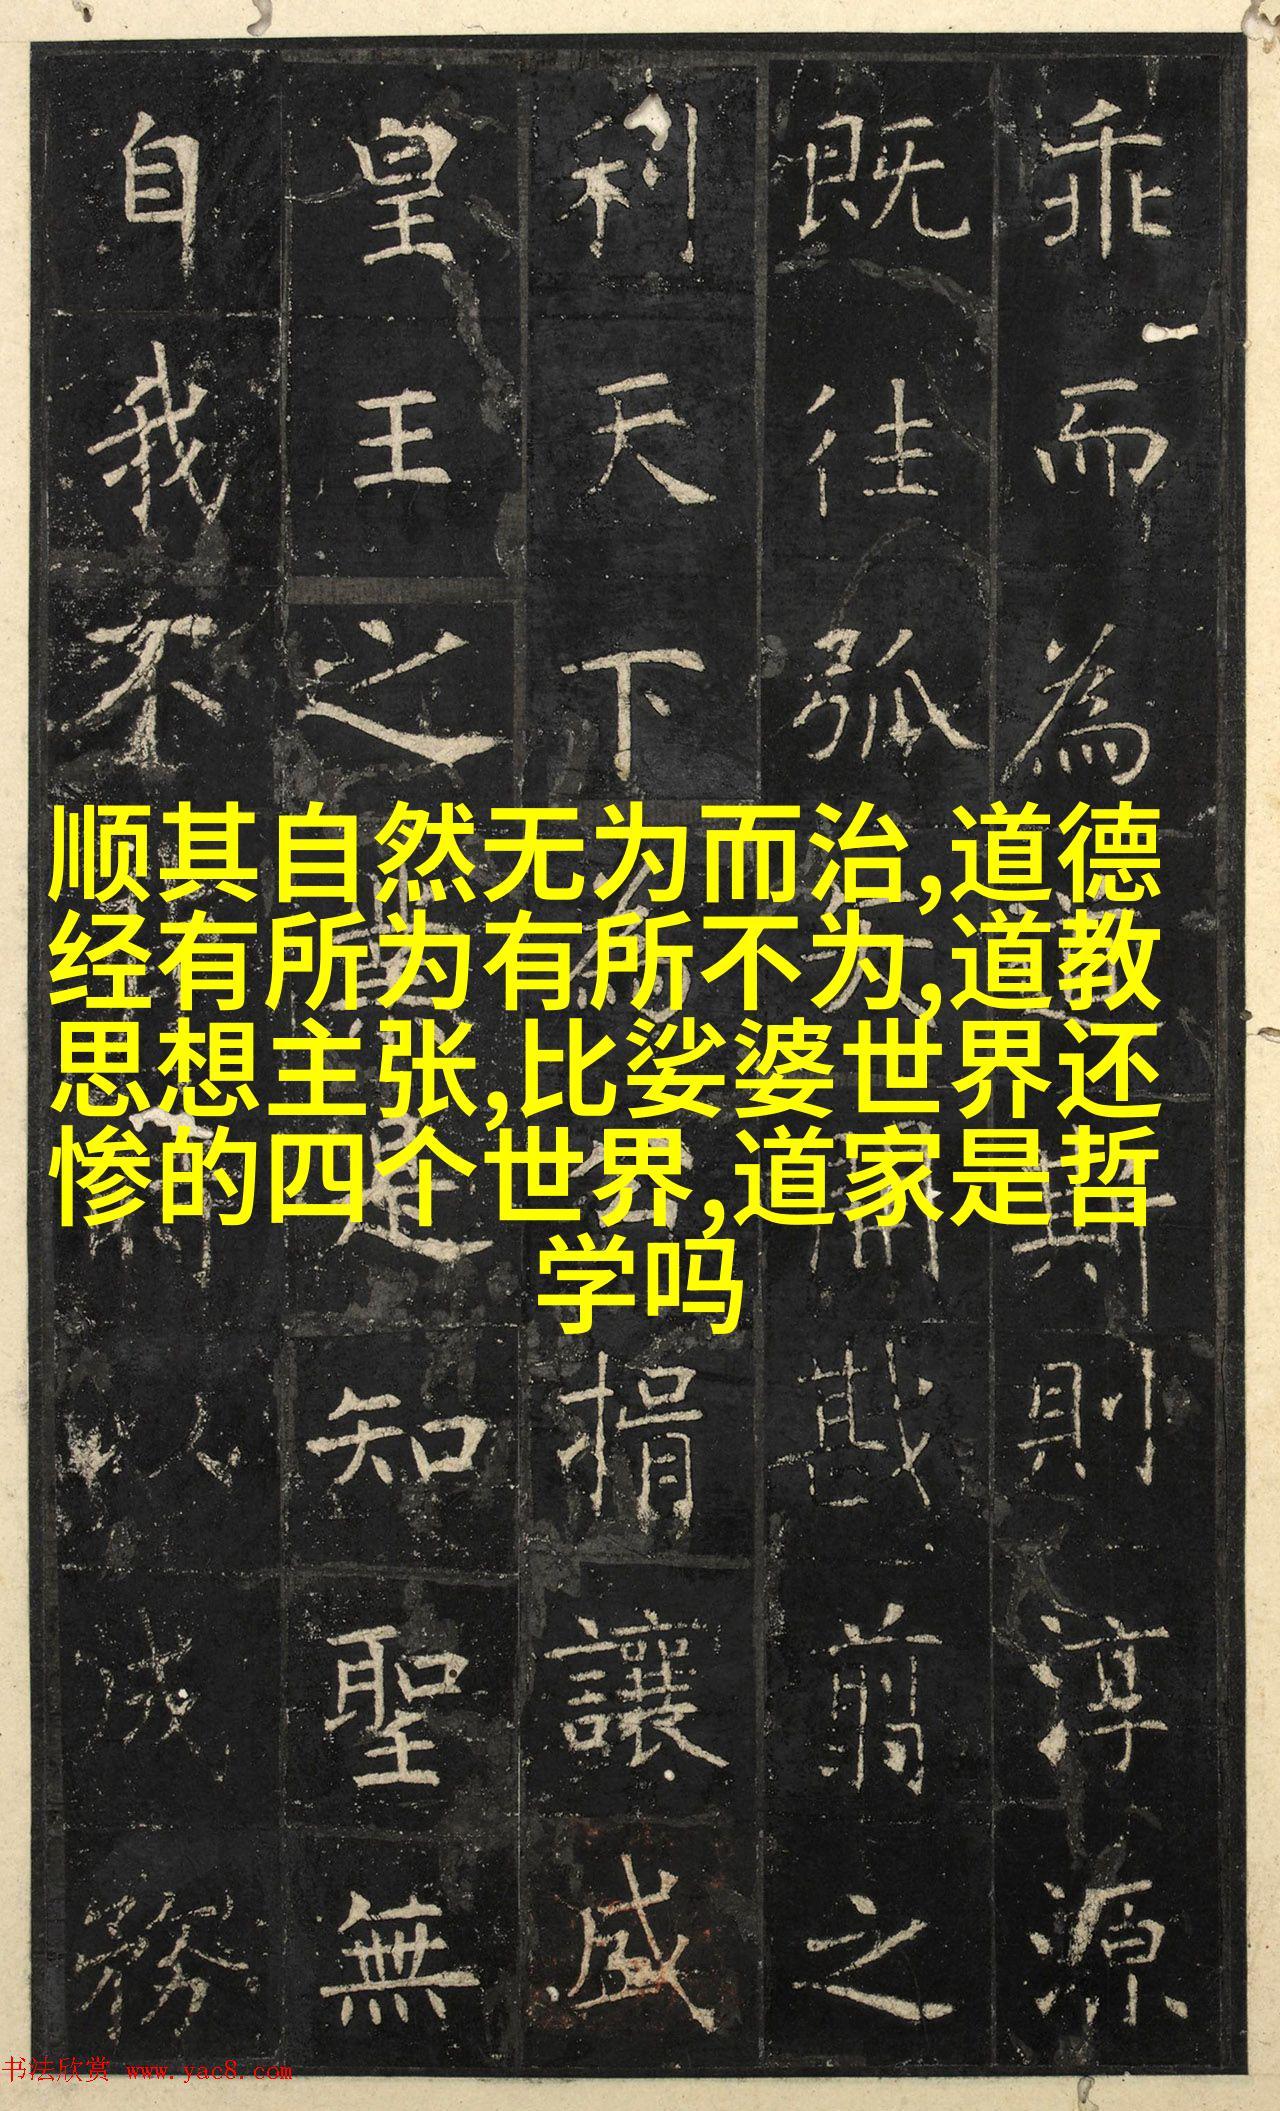 顺其自然无为而治,道德
经有所为有所不为,道教
思想主张,比娑婆世界还
惨的四个世界,道家是哲
学吗
乖而為則淳源
既往弧矢開戡翦之
利天下為公揖讓威
皇王之是知聖無
自我不務
书法欣赏 www.yac8.com